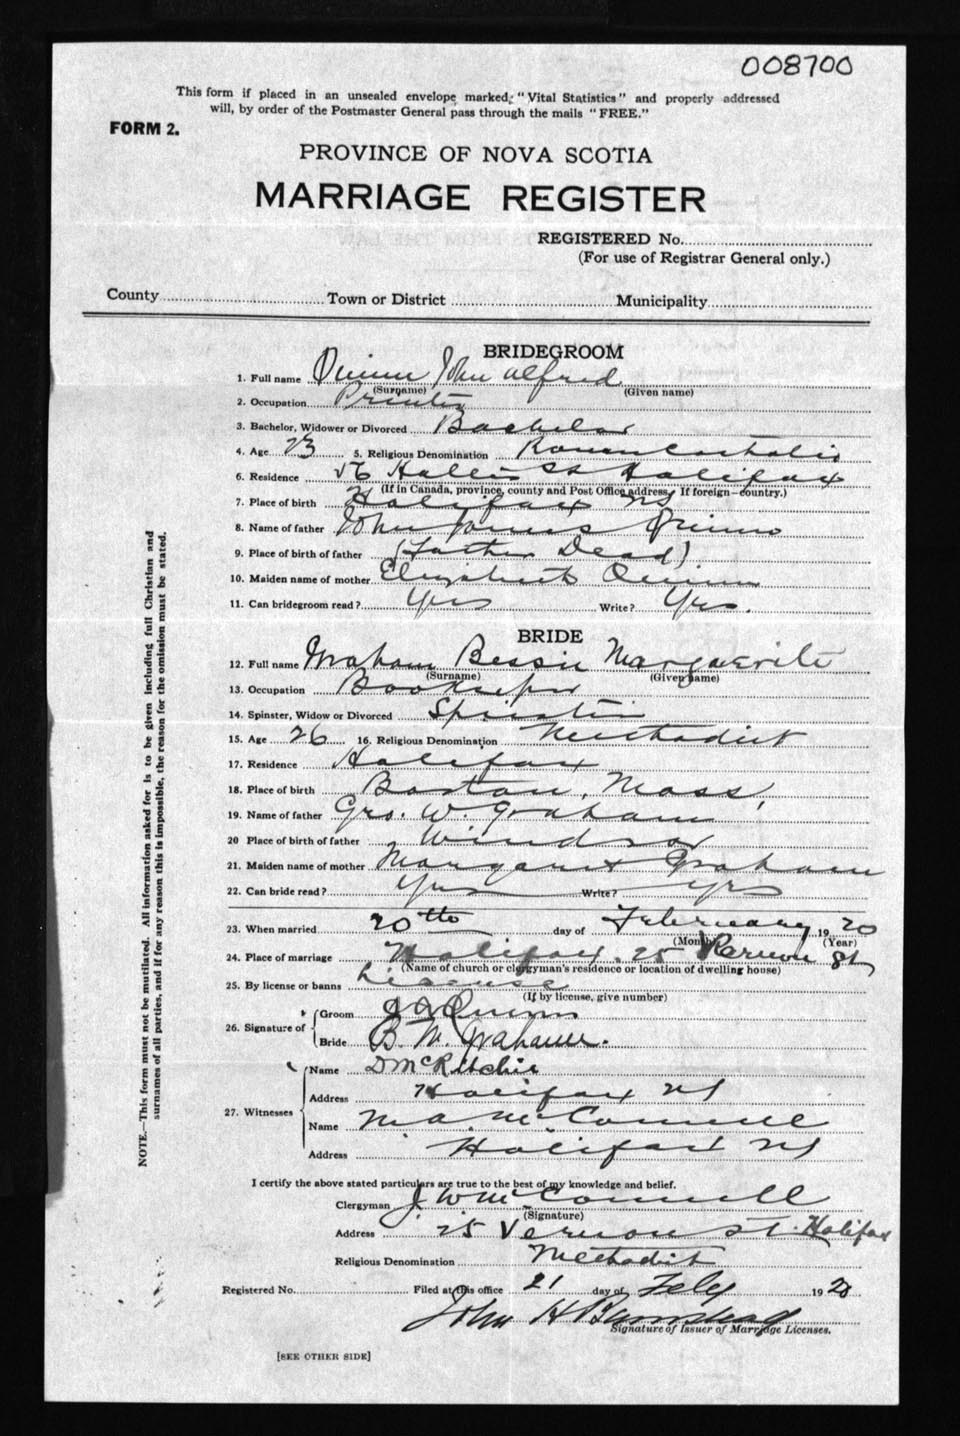 008700
This form if placed in an unsealed envelope marked; "Vital Statistics" and properly addressed
will, by order of the Postmaster General pass through the mails "FREE."
FORM 2.
PROVINCE OF NOVA SCOTIA
MARRIAGE REGISTER
REGISTERED No.
(For use of Registrar General only.)
County Town or District Municipality
BRIDEGROOM
1. Full name Quinn John Alfred
(Surname) (Given name)
2. Occupation Printer
3. Bachelor, Widower or Divorced Bachelor
4. Age 23 5. Religious Denomination Roman Catholic
6. Residence 56 Hollis St Halifax
(If in Canada, province, county and Post Office address. If foreign—country.)
7. Place of birth Halifax NS
8. Name of father John James Quinn
9. Place of birth of father (Father Dead)
10. Maiden name of mother Elizabeth Quinn
11. Can bridegroom read? Yes Write? Yes.
BRIDE
12. Full name Graham Bessie Marguerite
(Surname) (Given name)
13. Occupation Bookkeeper
14. Spinster, Widow or Divorced Spinster
15. Age 26 16. Religious Denomination Methodist
17. Residence Halifax
18. Place of birth Boston, Mass,
19. Name of father Geo. W. Graham
20 Place of birth of father Windsor
21. Maiden name of mother Margaret Graham
22. Can bride read? Yes Write? Yes
23. When married 20th day of February 1920
(Month) (Year)
24. Place of marriage Halifax. 25 Vernon St
(Name of church or clergyman's residence or location of dwelling house)
25. By license or banns License
(If by license, give number)
26. Signature of Groom J A Quinn
Bride B. M. Graham.
27. Witnesses Name D McRitchie
Address Halifax NS
Name M. A. McConnell
Address Halifax NS
I certify the above stated particulars are true to the best of my knowledge and belief.
Clergyman J. W. McConnell
(Signature)
Address 25 Vernon St. Halifax
Religious Denomination Methodist
Registered No. Filed at this office 21 day of Feby 1920
John H Barnstead
Signature of Issuer of Marriage Licenses.
[SEE OTHER SIDE]
NOTE.—This form must not be mutilated. All information asked for is to be given including full Christian and
surnames of all parties, and if for any reason this is impossible, the reason for the omission must be stated.